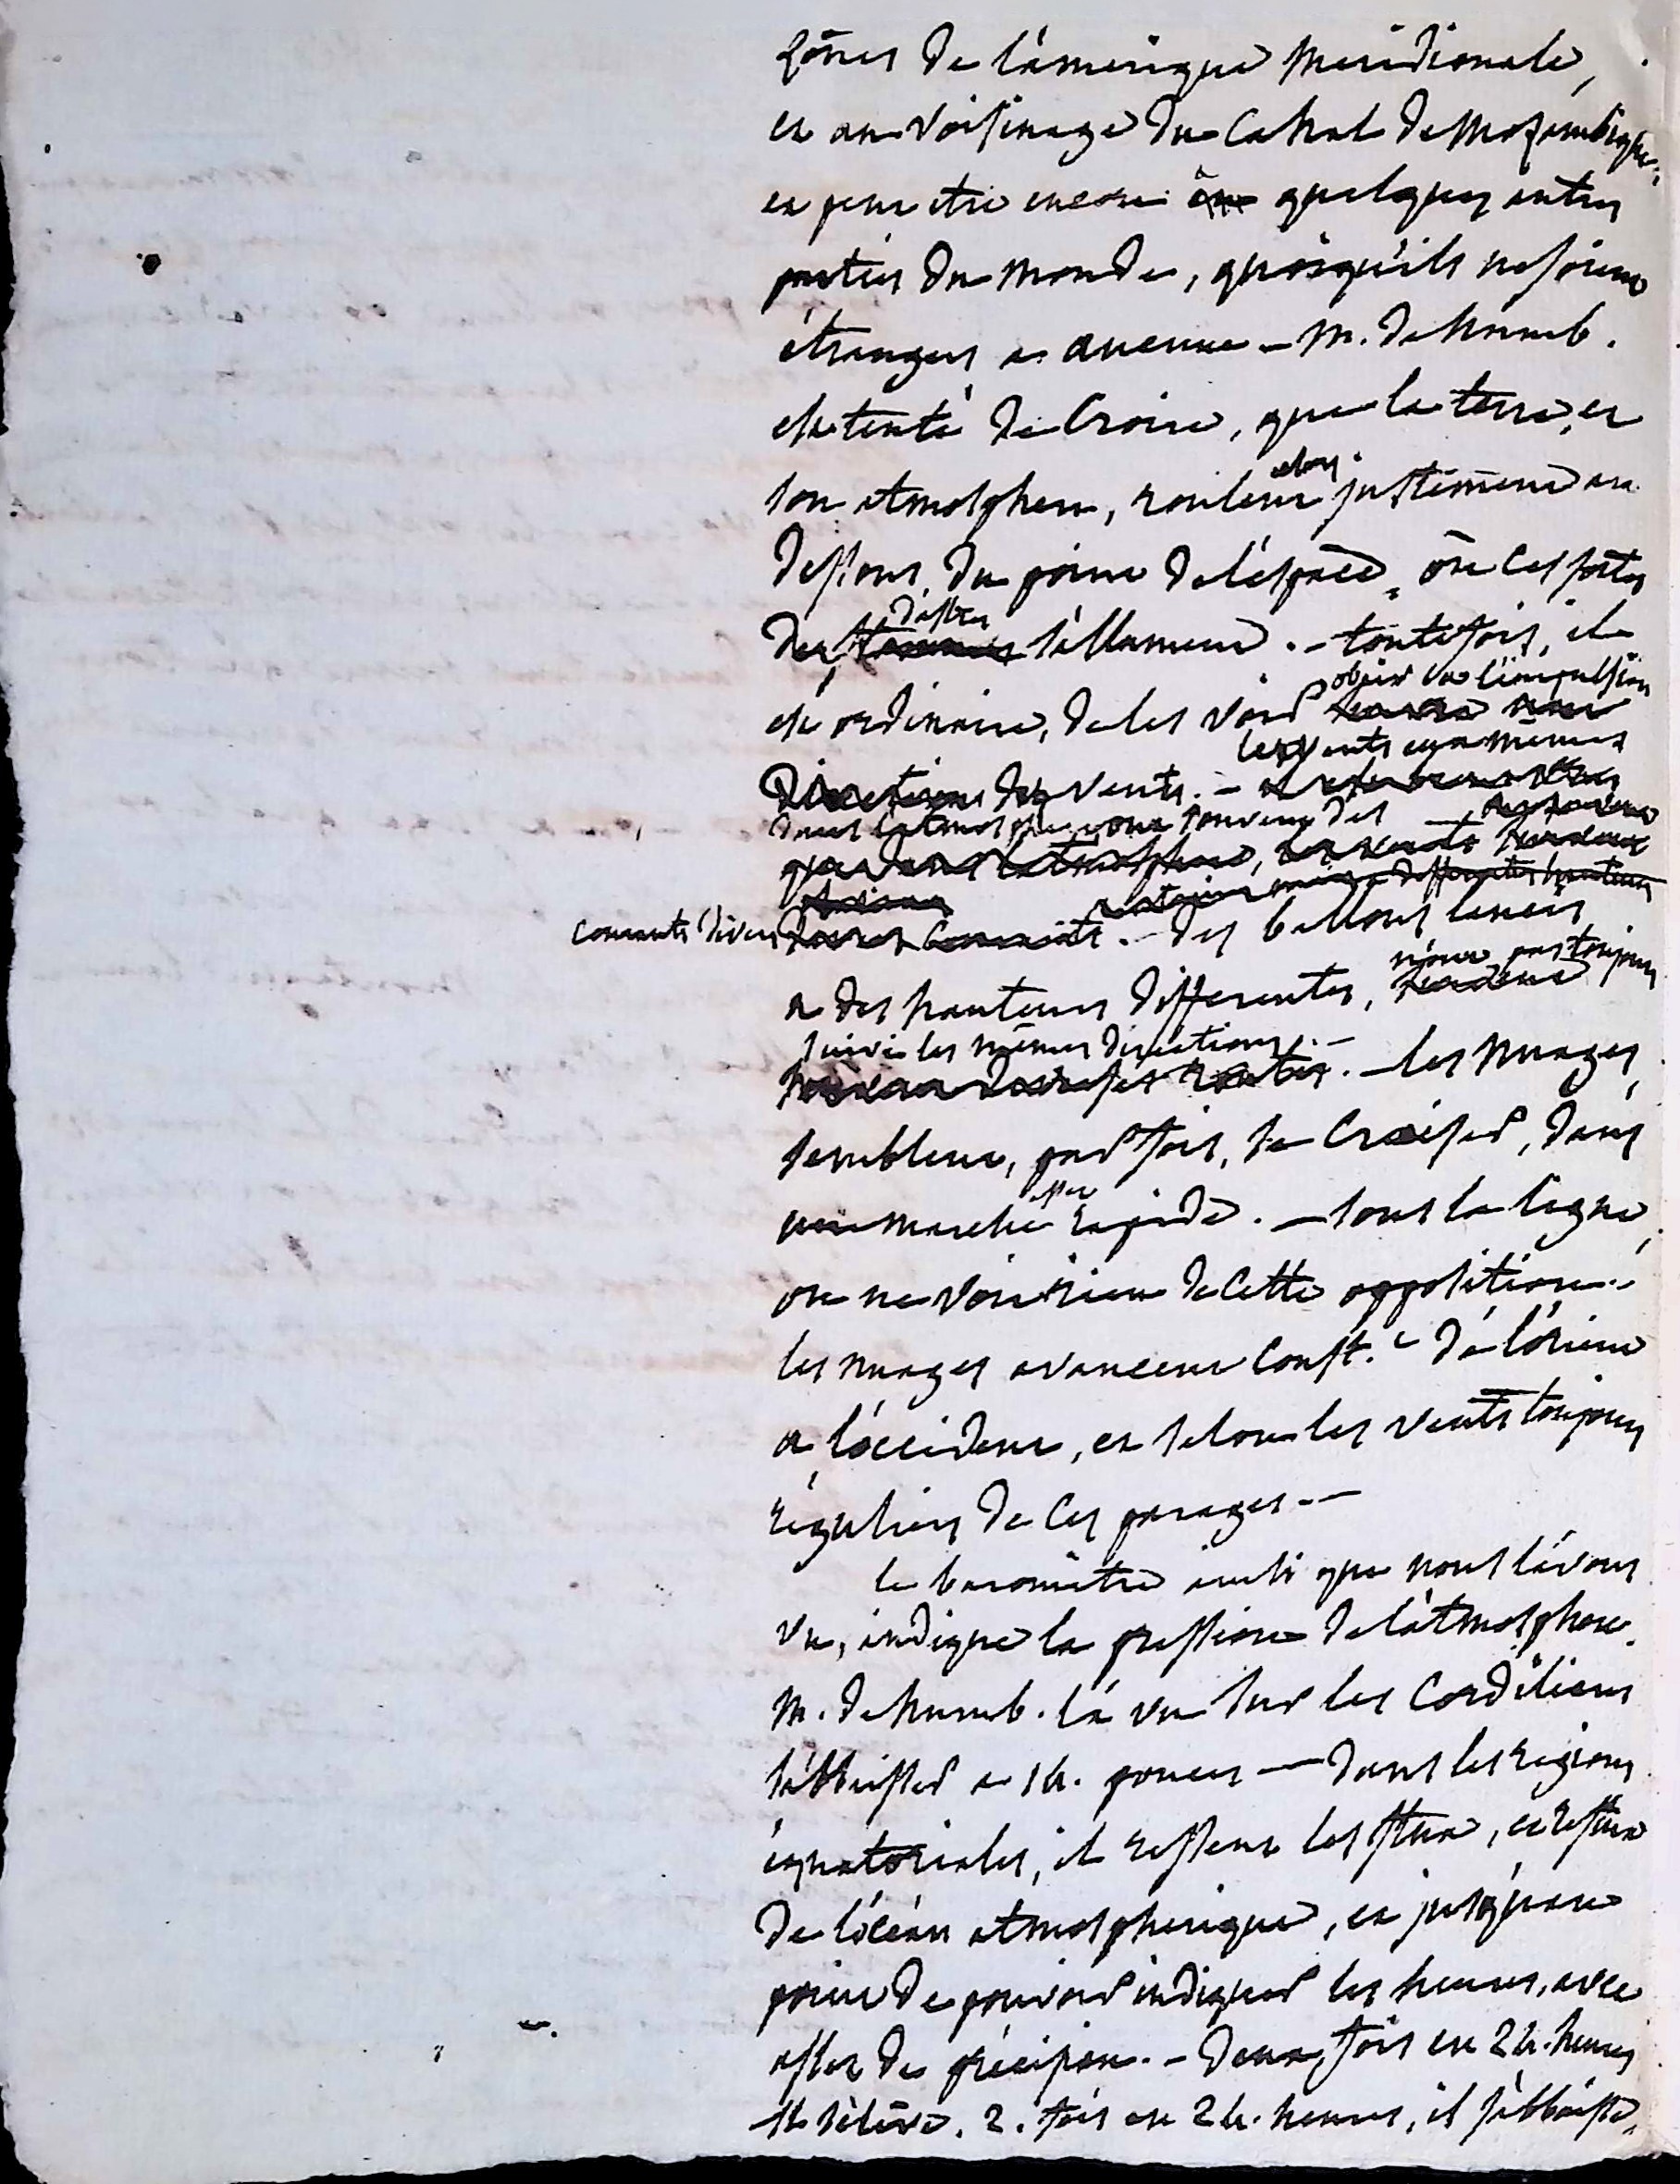 zônes de l'amerique meridionale,
et au voisinage du Canal de Mozambique,
et peut etre encore quelques autres
parties du monde, quoiqu'ils ne soient
étrangers a aucune - M. de humb.
est tenté de croire, que la terre, et
son atmosphere, roulent alors justement au
dessous du point de l'espace, où ces sortes
d'astres
s'allument. - toutefois, il
est ordinaire, de les voir obéir a l'impulsion
des vents. - les vents eux memes
dans l'atmosphere ont souvent des
courants divers. - des ballons lancés
a des hauteurs differentes, n'ont pas toujours
suivi les mêmes directions. -
les nuages,
semblent, par fois, se croiser, dans
une marche assez rapide. - sous la ligne,
on ne voit rien de cette opposition. -
les nuages avancent const.t de l'orient
a l'occident, et selon les vents toujours
réguliers de ces parages. -
le baromètre ainsi que nous l'avons
vu, indique la pression de l'atmosphere.
M. de humb. l'a vu sur les Cordilieres
s'abbaisser a 14. pouces - dans les régions
équatoriales, il ressent les flux, et reflux
de l'océan atmospherique, et jusqu'au
point de pouvoir indiquer les heures, avec
assez de précision. - deux fois en 24. heures
il s'élève. 2. fois en 24. heures, il s'abbaisse,